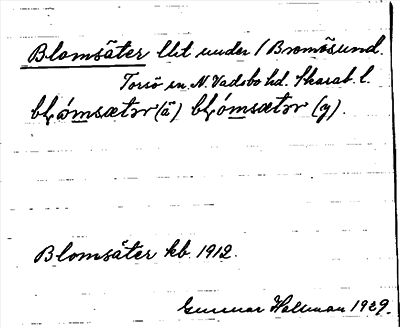 Blomsäter llit under 1 Bromösund.
Torsö sn. N. Vadsbo hd. Skarab. l.
bḷómsætər (ä) bḷómsætər (y).
Blomsäter kb. 1912.
Gunnar Hallman 1929.